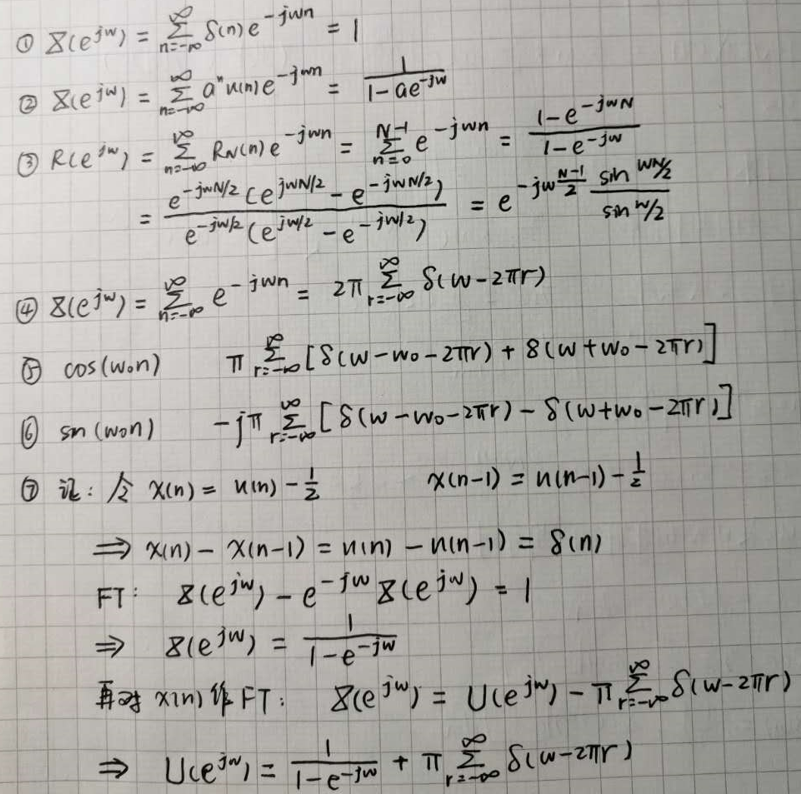 ① X(e^{jw}) = \sum_{n=-∞}^{∞} δ(n) e^{-jwn} = 1
② X(e^{jw}) = \sum_{n=-∞}^{∞} a^n u(n) e^{-jwn} = \frac{1}{1-ae^{-jw}}
③ R(e^{jw}) = \sum_{n=-∞}^{∞} R_N(n) e^{-jwn} = \sum_{n=0}^{N-1} e^{-jwn} = \frac{1-e^{-jwN}}{1-e^{-jw}}
= \frac{e^{-jwN/2} (e^{jwN/2} - e^{-jwN/2})}{e^{-jw/2} (e^{jw/2} - e^{-jw/2})} = e^{-jw\frac{N-1}{2}} \frac{sin wN/2}{sin w/2}
④ X(e^{jw}) = \sum_{n=-∞}^{∞} e^{-jwn} = 2π \sum_{r=-∞}^{∞} δ(w-2πr)
⑤ cos(w₀n) π \sum_{r=-∞}^{∞} [δ(w-w₀-2πr) + δ(w+w₀-2πr)]
⑥ sin(w₀n) -jπ \sum_{r=-∞}^{∞} [δ(w-w₀-2πr) - δ(w+w₀-2πr)]
⑦ 证: 令 x(n) = u(n) - \frac{1}{2} x(n-1) = u(n-1) - \frac{1}{2}
⇒ x(n) - x(n-1) = u(n) - u(n-1) = δ(n)
FT: X(e^{jw}) - e^{-jw} X(e^{jw}) = 1
⇒ X(e^{jw}) = \frac{1}{1-e^{-jw}}
再对 x(n) 作FT: X(e^{jw}) = U(e^{jw}) - π \sum_{r=-∞}^{∞} δ(w-2πr)
⇒ U(e^{jw}) = \frac{1}{1-e^{-jw}} + π \sum_{r=-∞}^{∞} δ(w-2πr)